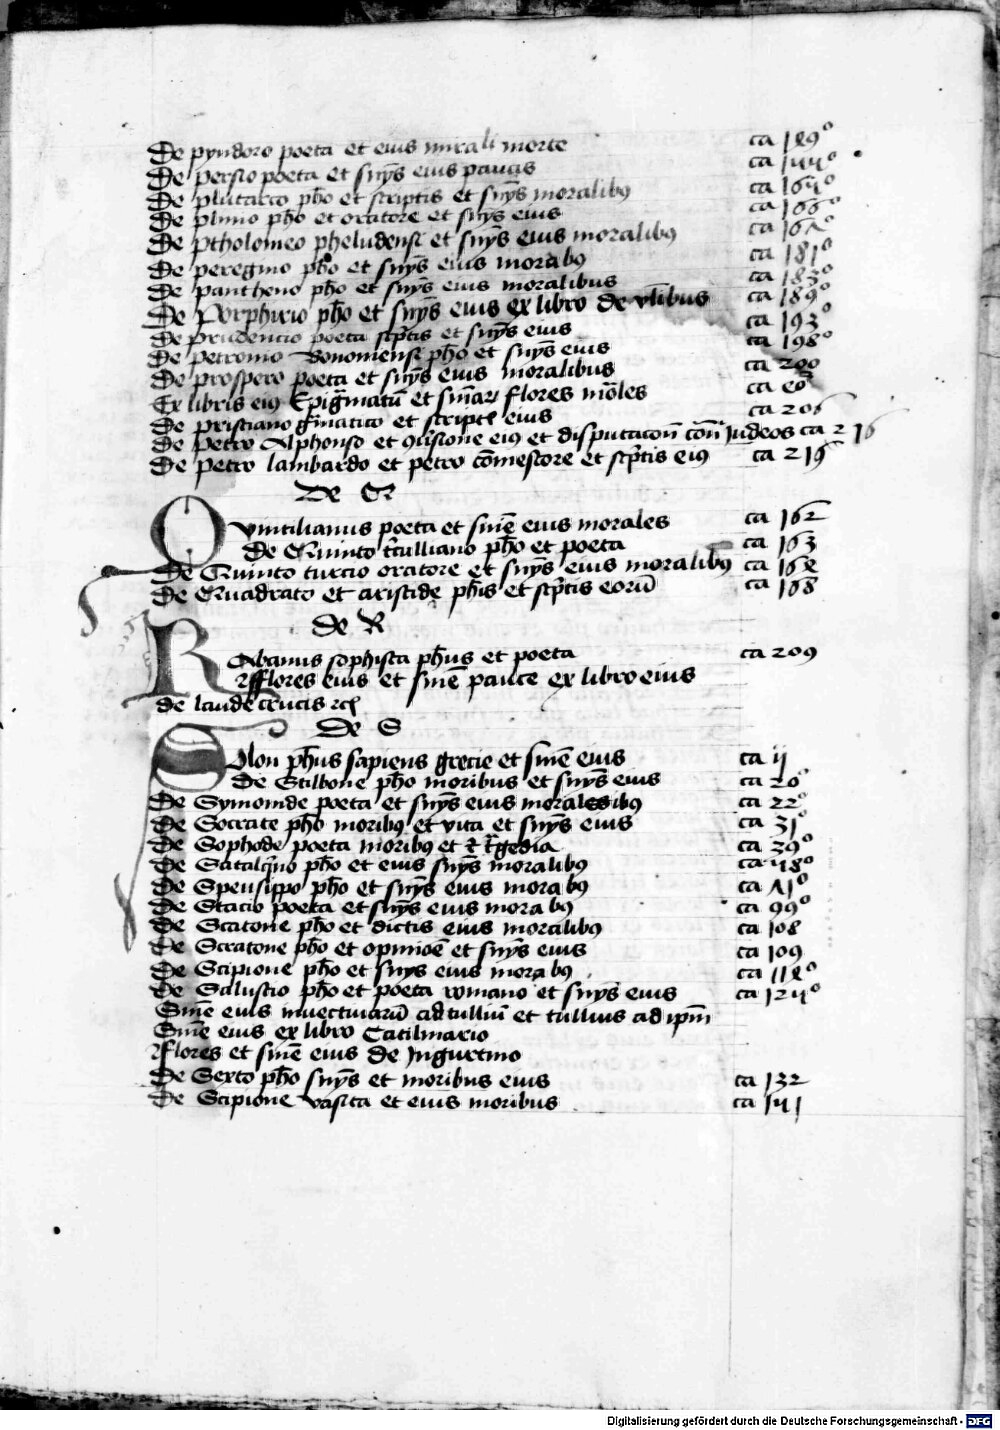 De pyndoro poeta et eius mirali morte ca 189º
De persio poeta et snȳs eius paucis ca 144º
De plutarco pħo et scriptis et snȳs moralibꝰ ca 164º
De plinio pħo et oratore et snȳs eius ca 166º
De ptholomeo pheludensi et snȳs eius moralibꝰ ca 167º
De peregrino pħo et snȳs eius morabꝰ ca 181º
De pantheno pħo et snȳs eius moralibus ca 183º
De Porphirio pħo et snȳs eius ex libro de vl̄ibus ca 189º
De prudencio poeta scp̄tis et snȳs eius ca 193º
De petronio bononiensi pħo et snȳs eius ca 198º
De prospero poeta et snȳs eius moralibus ca 200
Ex libris eiꝰ Epigr̄matū et sniar flores mōles ca eoº
De prisciano gr̄matico et script eius ca 206
De petro Alphonso et ꝯūsione eiꝰ et disputacōn̄ con̄ Judeos ca 216
De petro lambardo et petro cōmestore et scp̄tis eiꝰ ca 219
De Q
Quintilianus poeta et snīe eius morales ca 162
de Quinto tr̄tulliano pħo et poeta ca 163
De Quinto turcio oratore et snȳs eius moralibꝰ ca 165
De Quadrato et aristide pħis et scp̄tis eorū ca 168
de R
RAbanus sophista pħus et poeta ca 209
Fflores eius et snīe pauce ex libro eius
de laude crucis rc̄
De S
SOlon pħus sapiens grecie et snīe eius ca ii
De Stilbone pħo moribus et snȳs eius ca 20º
De Symonide poeta et snȳs eius moralesibꝰ ca 22º
De Socrate pħo moribꝰ et vita et snȳs eius ca 31º
De Sophode poeta moribꝰ et tr̄gedia ca 39º
De Satalqino pħo et eius snȳs moralibꝰ ca 48º
De Speusippo pħo et snȳs eius morabꝰ ca 71º
De Stacio poeta et snȳs eius morabꝰ ca 99º
De Scatone pħo et dictis eius moralibꝰ ca 108
De Stratone pħo et opinioē et snȳs eius ca 109
De Scipione pħo et snys eius morabꝰ ca 115º
De Salustio pħo et poeta romano et snȳs eius ca 124º
Snīe eius inuectiuarū ad tulliū et tullius ad ip̄m
Snīe eius ex libro Catilinario
Fflores et snīe eius de Jngurtino
De Sexto pħo snȳs et moribus eius ca 132
De Scipione vasita et eius moribus ca 141
Digitalisierung gefördert durch die Deutsche Forschungsgemeinschaft - DFG